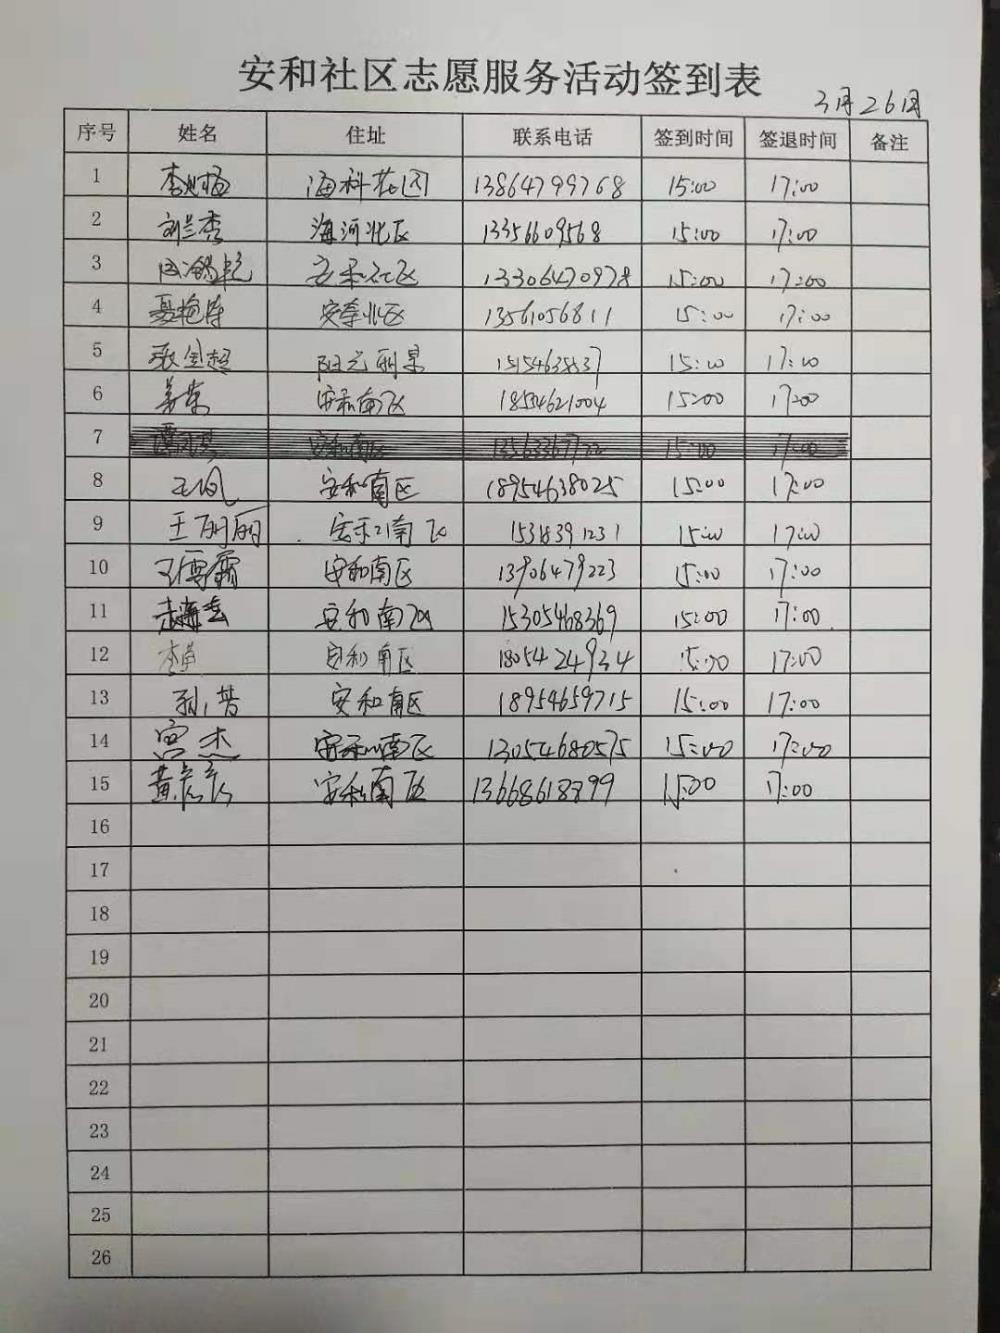 安和社区志愿服务活动签到表
3月26日
序号 姓名 住址 联系电话 签到时间 签退时间 备注
1 海科花园 13864799768 15:00 17:00
2 刘兰秀 海河北区 13356609568 15:00 17:00
3 安和社区 13306470978 15:00 17:00
4 安泰北区 13561056811 15:00 17:00
5 张金超 阳光丽景 15:00 17:00
6 姜荣 安和南区 18554621004 15:00 17:00
7 安和南区 15:00 17:00
8 王凤 安和南区 18954638025 15:00 17:00
9 王丽丽 安和南区 15383991231 15:00 17:00
10 安和南区 13906479223 15:00 17:00
11 安和南区 15305468369 15:00 17:00
12 安和南区 18054249934 15:00 17:00
13 安和南区 18954659715 15:00 17:00
14 宫杰 安和南区 13054680575 15:00 17:00
15 安和南区 13668618799 15:00 17:00
16
17
18
19
20
21
22
23
24
25
26